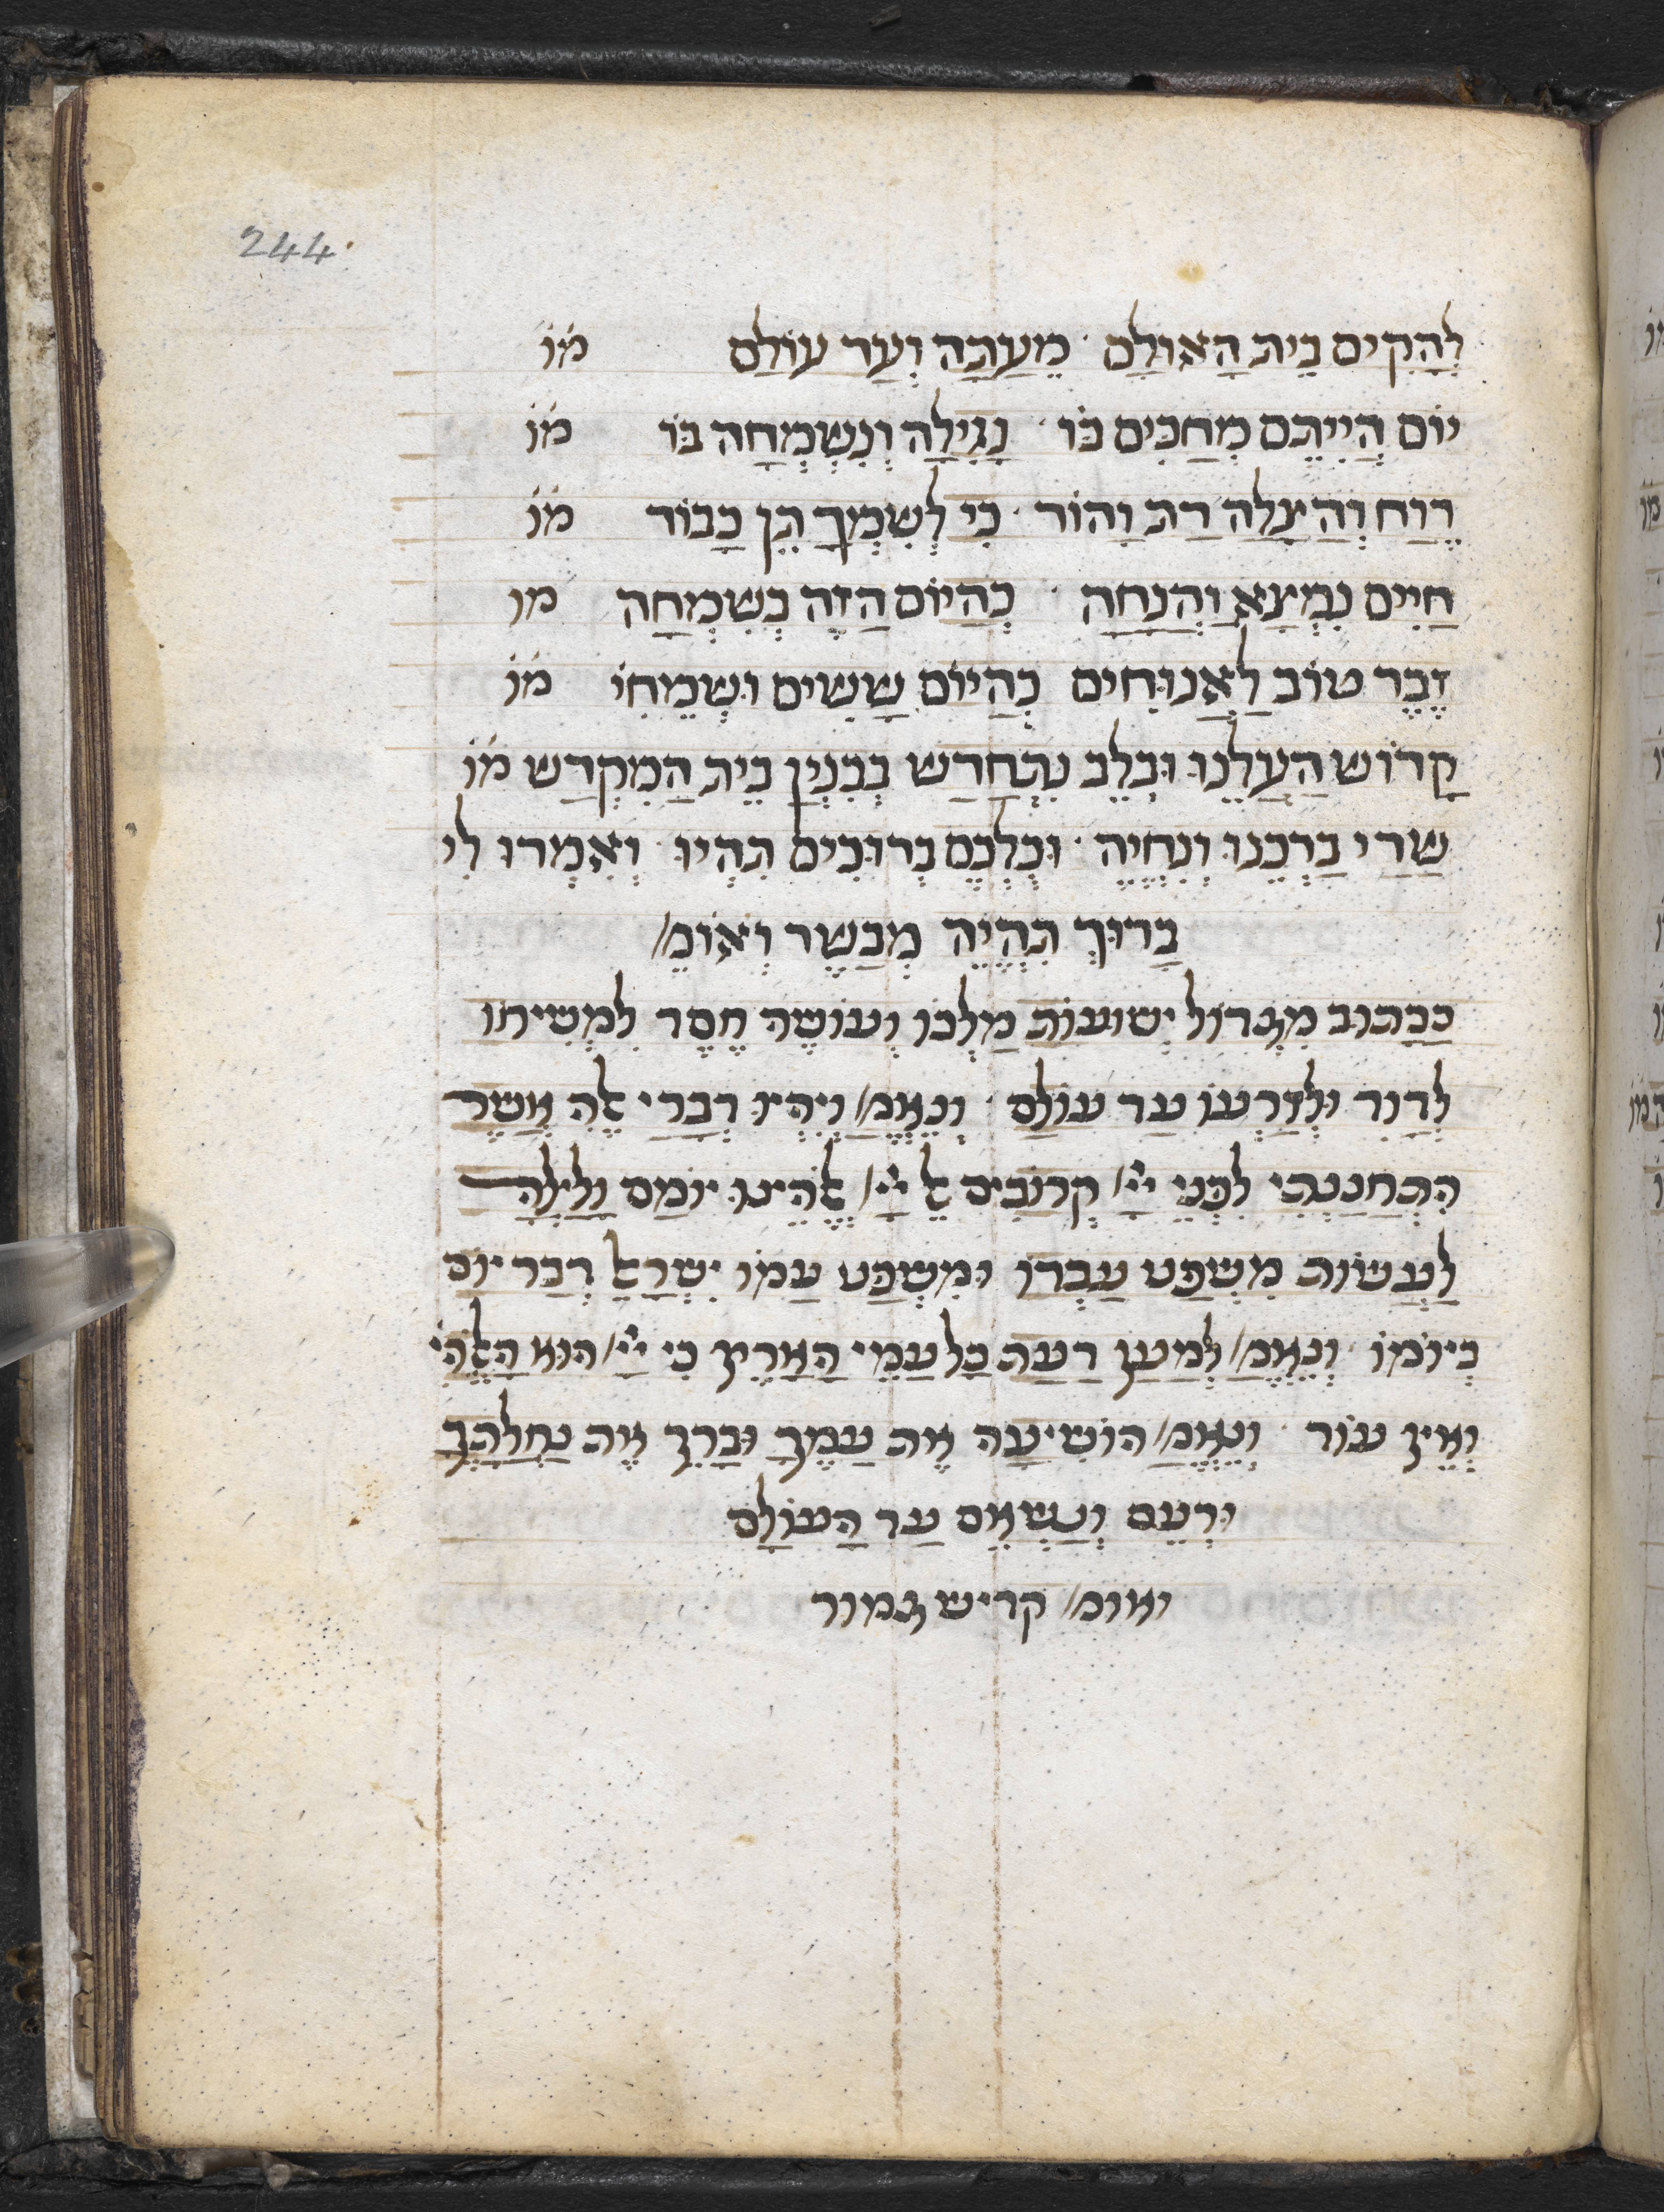 244
לְהָקִים בֵּית הָאוּלָם · מֵעַתָּה וְעַד עוֹלָם מוֹ
יוֹם הֱיִיתֶם מְחַכִּים בּוֹ · נָגִילָה וְנִשְׂמְחָה בּוֹ מוֹ
רֶוַח וְהַצָּלָה דַּת וָהוֹד · כִּי לְשִׁמְךָ תֵּן כָּבוֹד מוֹ
חַיִּים נִמְצָא וַהֲנָחָה · כְּהַיּוֹם הַזֶּה בְּשִׂמְחָה מו
זֶכֶר טוֹב לַאֲנוּחִים כְּהַיּוֹם שָׂשִׂים וּשְׂמֵחִי מוֹ
קָדוֹשׁ הַעֲלֵנוּ וּבְלֵב נִתְחַדַּשׁ בְּבִנְיַן בֵּית הַמִּקְדָּשׁ מוֹ
שַׁדַּי בָּרְכֵנוּ וְנִחְיֶה · וּכֻלְּכֶם בְּרוּכִים תִּהְיוּ · וְאִמְרוּ לִי
בָּרוּךְ תִּהְיֶה מְבַשֵּׂר וְאוֹמֵ/
כַּכָּתוּב מִגְדּוֹל יְשׁוּעוֹת מַלְכּוֹ וְעוֹשֶׂה חֶסֶד לִמְשִׁיחוֹ
לְדָוִד וּלְזַרְעוֹ עַד עוֹלָם · וְנֶאֱמַ/ וְיִהְיוּ דְבָרַי אֵלֶּה אֲשֶׁר
הִתְחַנַּנְתִּי לִפְנֵי יְיָ/ קְרוֹבִים אֶל יְיָ/ אֱלֹהֵינוּ יוֹמָם וָלַיְלָה
לַעֲשׂוֹת מִשְׁפַּט עַבְדּוֹ וּמִשְׁפַּט עַמּוֹ יִשְׂרָאֵל דְּבַר יוֹם
בְּיוֹמוֹ · וְנֶאֱמַ/ לְמַעַן דַּעַת כָּל עַמֵּי הָאָרֶץ כִּי יְיָ/ הוּא הָאֱלֹהִי
וְאֵין עוֹד · וְנֶאֱמַ/ הוֹשִׁיעָה אֶת עַמֶּךָ וּבָרֵךְ אֶת נַחֲלָתֶךָ
וּרְעֵם וְנַשְּׂאֵם עַד הָעוֹלָם
ואומ/ קדיש גמור